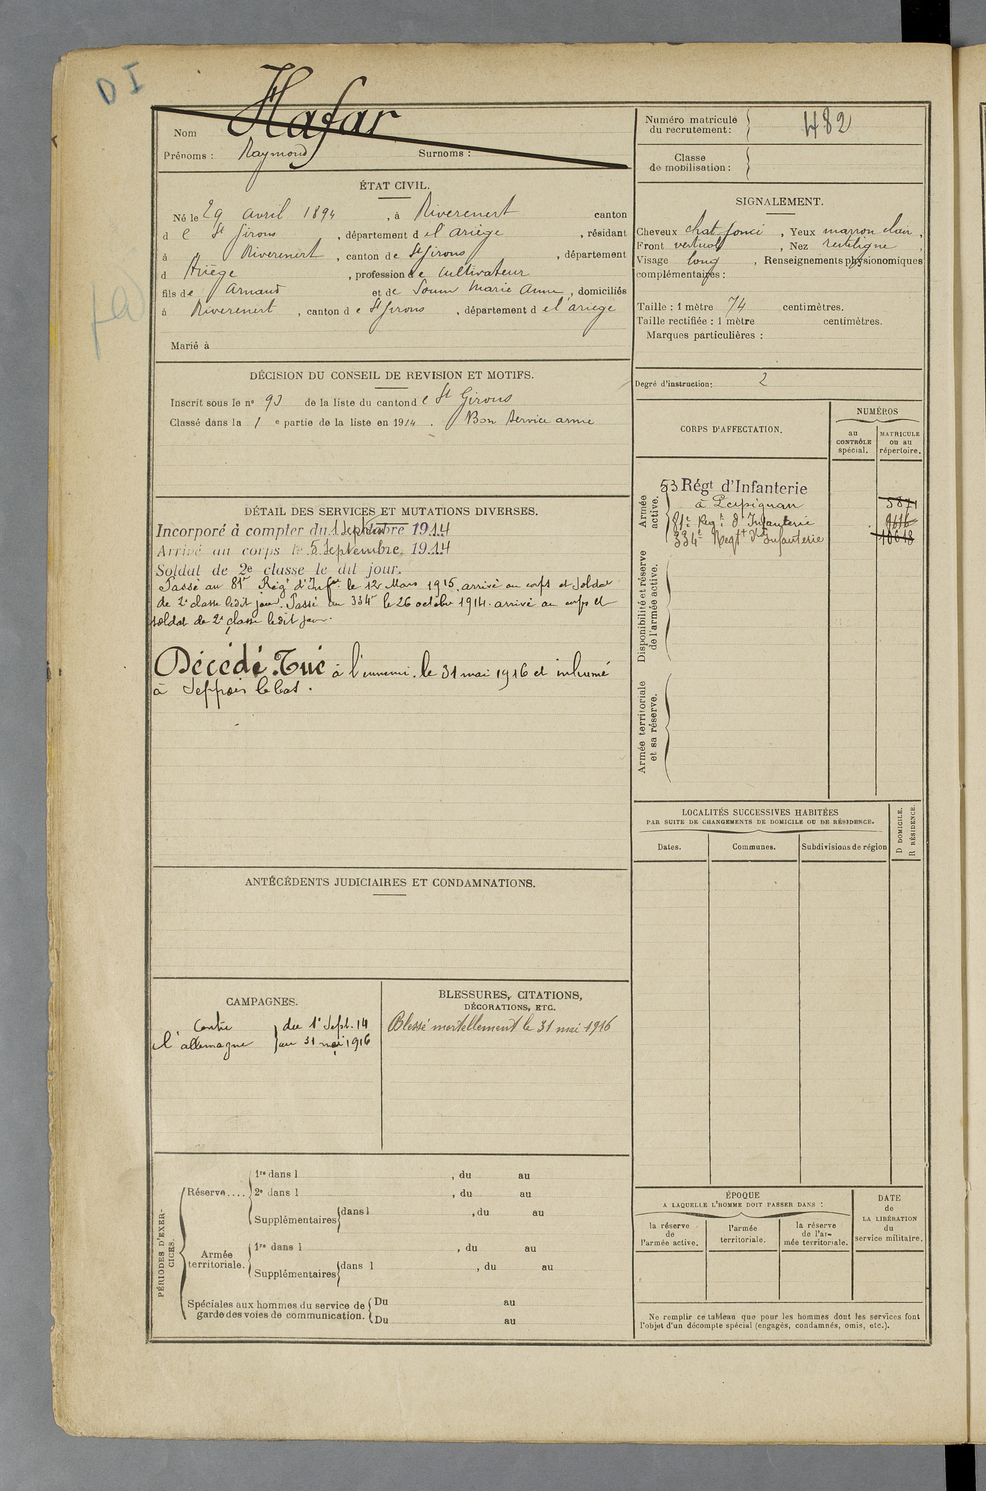 D I
Nom Hafar
Prénoms : Raymond Surnoms :
Numéro matricule du recrutement : 482
Classe de mobilisation :
ÉTAT CIVIL.
Né le 29 avril 1894, à Riverenert canton
d e St Girons, département d e l'ariège, résidant
à Riverenert, canton de St Girons, département
d Ariège, profession de cultivateur
fils de Arnaud et de Soum Marie Anne, domiciliés
à Riverenert, canton d e St Girons, département d e l'ariège
Marié à
SIGNALEMENT.
Cheveux chat foncé, Yeux marron clair,
Front vertical, Nez rectiligne,
Visage long, Renseignements physionomiques
complémentaires :
Taille : 1 mètre 74 centimètres.
Taille rectifiée : 1 mètre centimètres.
Marques particulières :
Degré d'instruction : 2
DÉCISION DU CONSEIL DE REVISION ET MOTIFS.
Inscrit sous le n° 93 de la liste du canton d e St Girons
Classé dans la 1 e partie de la liste en 1914. Bon service armé
CORPS D'AFFECTATION.
NUMÉROS
au CONTRÔLE spécial.
MATRICULE ou au répertoire.
Armée active.
53 Régt d'Infanterie
à Perpignan 5871
81e Reg.t d'Infanterie 9616
334e Regt d'Infanterie 10618
Disponibilité et réserve de l'armée active.
Armée territoriale et sa réserve.
DÉTAIL DES SERVICES ET MUTATIONS DIVERSES.
Incorporé à compter du 1 Septembre 1914
Arrivé au corps le 5 Septembre 1914
Soldat de 2e classe le dit jour.
Passé au 81e Régt d'Infie le 12 Mars 1915. arrivé au corps et soldat
de 2e classe ledit jour. Passé au 334e le 26 octobre 1914. arrivé au corps et
soldat de 2e classe ledit jour.
Décédé. Tué à l'ennemi. le 31 mai 1916 et inhumé
à Seppois le bas.
LOCALITÉS SUCCESSIVES HABITÉES
PAR SUITE DE CHANGEMENTS DE DOMICILE OU DE RÉSIDENCE.
D DOMICILE.
R RÉSIDENCE.
Dates. Communes. Subdivisions de région
ANTÉCÉDENTS JUDICIAIRES ET CONDAMNATIONS.
CAMPAGNES.
Contre du 1er Sept. 14
l'allemagne au 31 mai 1916
BLESSURES, CITATIONS,
DÉCORATIONS, ETC.
Blessé mortellement le 31 mai 1916
PÉRIODES D'EXERCICES.
Réserve....
1re dans l , du au
2e dans l , du au
Supplémentaires dans l , du au
Armée territoriale.
1re dans l , du au
Supplémentaires dans l , du au
Spéciales aux hommes du service de garde des voies de communication.
Du au
Du au
ÉPOQUE
A LAQUELLE L'HOMME DOIT PASSER DANS :
la réserve de l'armée active.
l'armée territoriale.
la réserve de l'armée territoriale.
DATE de LA LIBÉRATION du service militaire.
Ne remplir ce tableau que pour les hommes dont les services font
l'objet d'un décompte spécial (engagés, condamnés, omis, etc.).